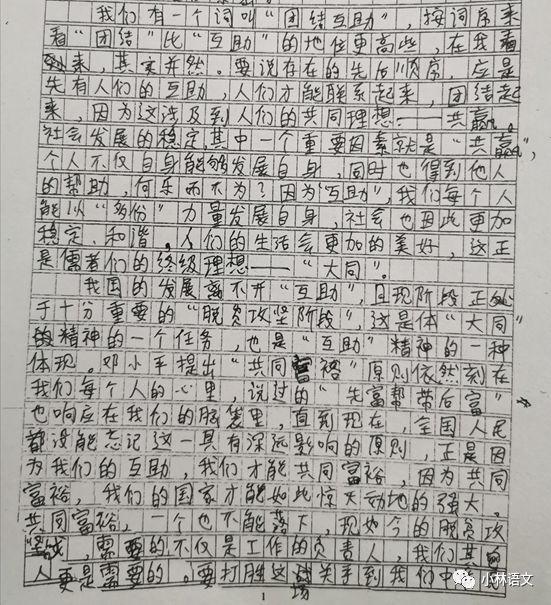 我们有一个词叫“团结互助”，按词序来
看“团结”比“互助”的地位更高些，在我看
来，其实并然。要说存在的先后顺序，应是
先有人们的互助，人们才能联系起来，团结起
来，因为这涉及到人们的共同理想——共赢。
社会发展的稳定，其中一个重要因素就是“共赢”，
个人不仅自身能够发展自身，同时也得到他人
的帮助，何乐而不为？因为“互助”，我们每个人
能以“多份”力量发展自身，社会也因此更加
稳定、和谐，人们的生活会更加的美好，这正
是儒者们的终级理想——“大同”。
我国的发展离不开“互助”，且现阶段正处
于十分重要的“脱贫攻坚阶段”，这是体“大同”
的精神的一个任务，也是“互助”精神的一种
体现。邓小平提出“共同富裕”原则依然刻在
我们每个人的心里，说过的“先富帮带后富”
也响应在我们的脑袋里，直到现在，全国人民
都没能忘记这一具有深远影响的原则，正是因
为我们的互助，我们才能共同富裕，因为共同
富裕，我们的国家才能如此惊天动地的强大。
共同富裕，一个也不能落下，现如今的脱贫攻
坚战，需要的不仅是工作的负责人，我们其
人更是需要的。要打胜这场关乎到我们中
1
小林语文